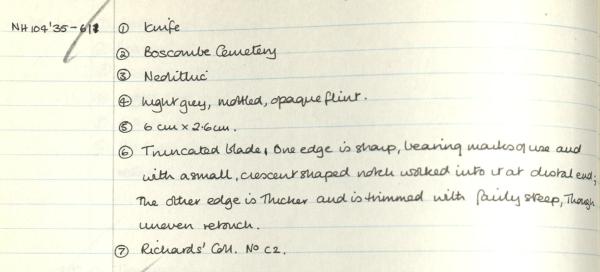 NH 104'35-611 ① Knife
② Boscombe Cemetery
③ Neolithic
④ Light grey, mottled, opaque flint.
⑤ 6 cm x 2.6cm.
⑥ Truncated blade, One edge is sharp, bearing marks of use and
with a small, crescent shaped notch worked into it at distal end;
The other edge is thicker and is trimmed with fairly steep, though
uneven retouch.
⑦ Richards' Coll. No C2.